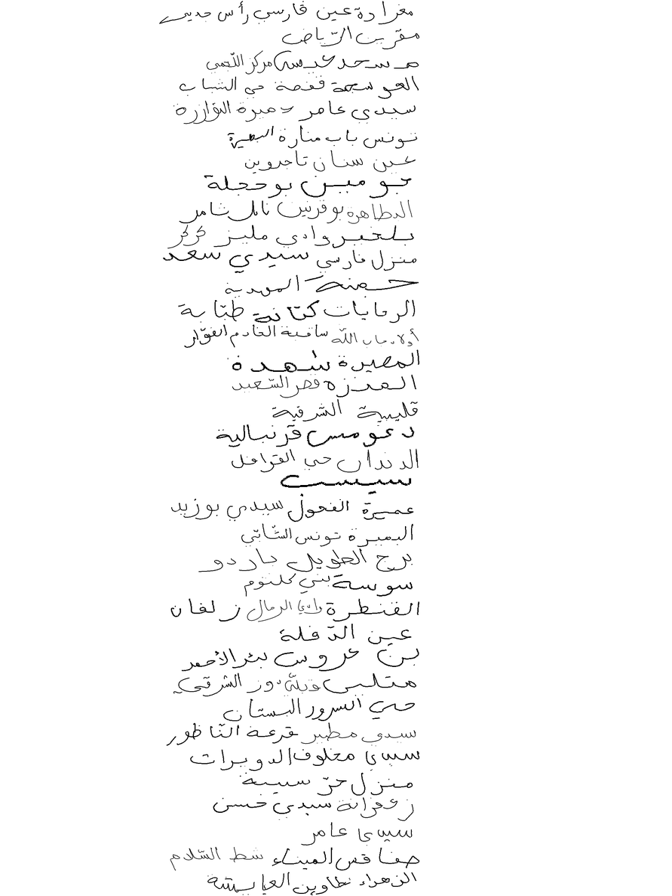 مغرادة عين فارسي رأس جدير
مقرين الرياض
مسجد عيسى مركز اللصي
العوسجة قفصة حي الشباب
سيدي عامر دميرة التوازرة
تونس باب منارة البحيرة
عين سنان تاجروين
جومين بوحجلة
الطاهرة بوفريس نابل شامر
بلخير وادي مليز كركر
منزل فارسي سيدي سعد
جمنة المهدية
الرمايات كتانة طبابة
أولاد جاب الله ساقية الخادم الفوار
المصيدة شهدة
المنزه قصر السعيد
قليبية الشرفية
دغومس قرنبالية
الدندان حي القوافل
سيسب
عميرة الفحول سيدي بوزيد
البحيرة تونس الشاتي
برج الطويل باردو
سوسة بني كلثوم
القنطرة وادي الرمال زلفان
عين الدفلة
بن عروس بئر الأحمر
متلين دوز الشرقي
حي السرور البستان
سيدي مطير قرعة الناظور
سيدي مخلوف الدويرات
منزل حر سبيبة
زعفرانة سيدي حسن
سيدي عامر
صفاقس الميناء شط السلام
الزهراء تطاوين العبابسة